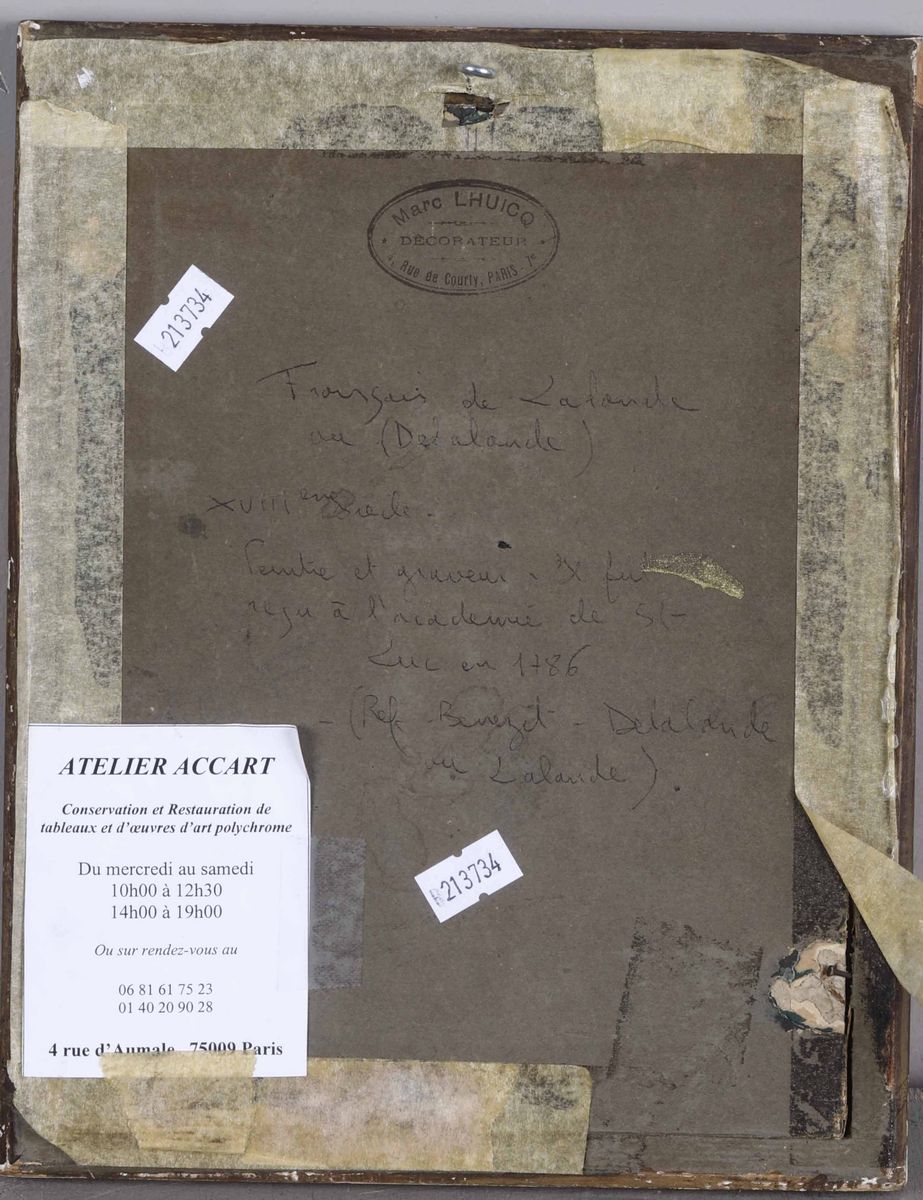 Marc LHUICQ
DÉCORATEUR
4, Rue de Courty, PARIS - 7e
213734
Français de Lalande
ou (Delalande)
XVIIIeme Siecle.
Peintre et graveur. Il fut
reçu à l'academie de St-
Luc en 1786
- (Ref. Benezit - Delalande
ou Lalande).
ATELIER ACCART
Conservation et Restauration de
tableaux et d'œuvres d'art polychrome
Du mercredi au samedi
10h00 à 12h30
14h00 à 19h00
Ou sur rendez-vous au
06 81 61 75 23
01 40 20 90 28
4 rue d'Aumale 75009 Paris
213734